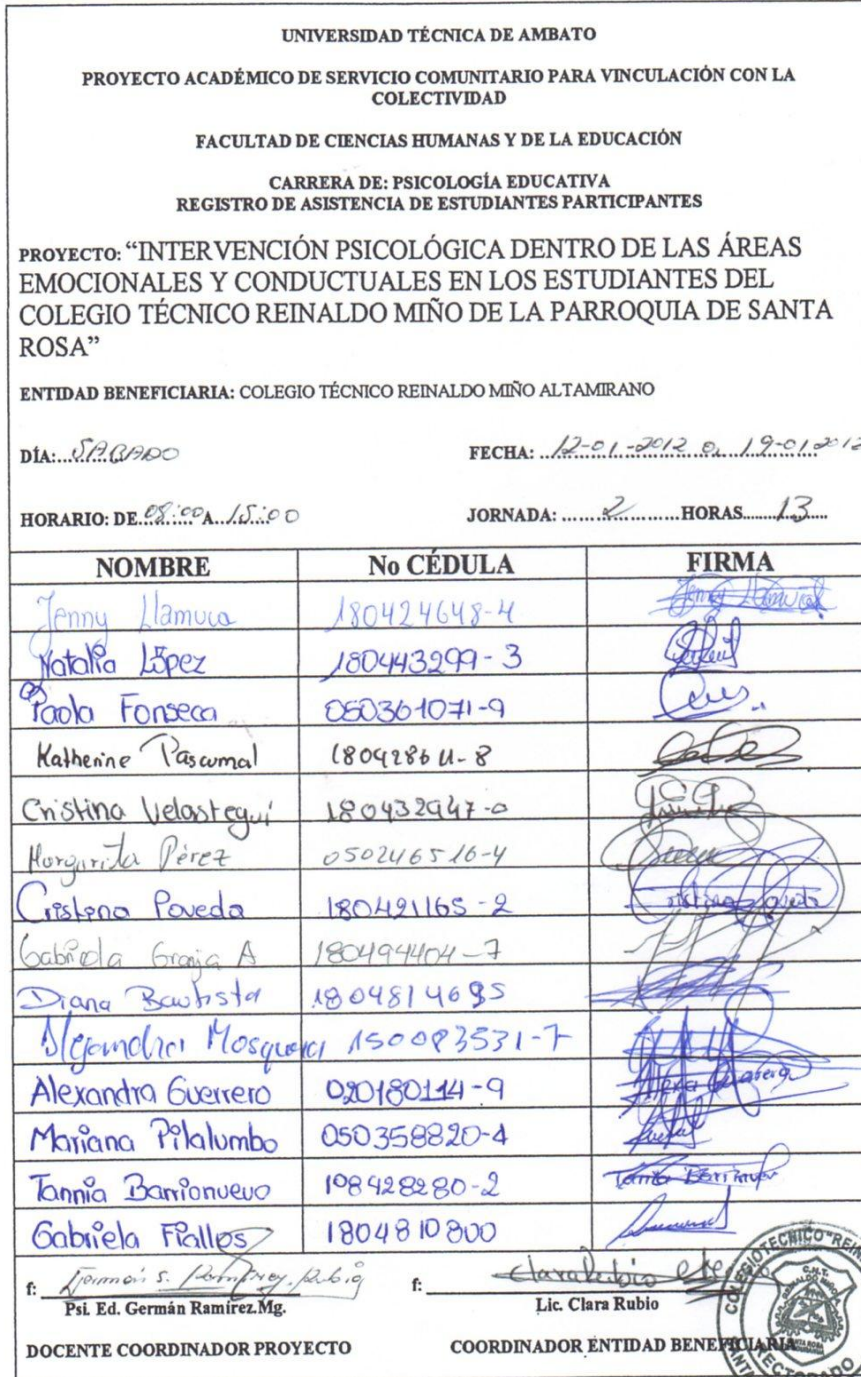 UNIVERSIDAD TÉCNICA DE AMBATO
PROYECTO ACADÉMICO DE SERVICIO COMUNITARIO PARA VINCULACIÓN CON LA
COLECTIVIDAD
FACULTAD DE CIENCIAS HUMANAS Y DE LA EDUCACIÓN
CARRERA DE: PSICOLOGÍA EDUCATIVA
REGISTRO DE ASISTENCIA DE ESTUDIANTES PARTICIPANTES
PROYECTO: “INTERVENCIÓN PSICOLÓGICA DENTRO DE LAS ÁREAS
EMOCIONALES Y CONDUCTUALES EN LOS ESTUDIANTES DEL
COLEGIO TÉCNICO REINALDO MIÑO DE LA PARROQUIA DE SANTA
ROSA”
ENTIDAD BENEFICIARIA: COLEGIO TÉCNICO REINALDO MIÑO ALTAMIRANO
DÍA: SABADO FECHA: 12-01-2012 a 19-01-2012
HORARIO: DE 08:00 A 15:00 JORNADA: 2 HORAS 13
NOMBRE No CÉDULA FIRMA
Jenny Llamuca 180424648-4 Jenny Llamuca
Natalia López 180443299-3
Paola Fonseca 050361071-9
Katherine Pascumal
Cristina Velastegui 180432947-0
Margarita Pérez 050246516-4
Cristina Poveda 180421165-2 Cristina Poveda
Gabriela Granja A 180494404-7
Diana Bautista
Alejandra Mosquera 150083531-7
Alexandra Guerrero 020180114-9
Mariana Pilalumbo 050358820-4
Tannia Barrionuevo 108428280-2 Tannia Barrionuevo
Gabriela Fiallos 1804810800
f: f: Clara Rubio
Psi. Ed. Germán Ramírez.Mg. Lic. Clara Rubio
DOCENTE COORDINADOR PROYECTO COORDINADOR ENTIDAD BENEFICIARIA